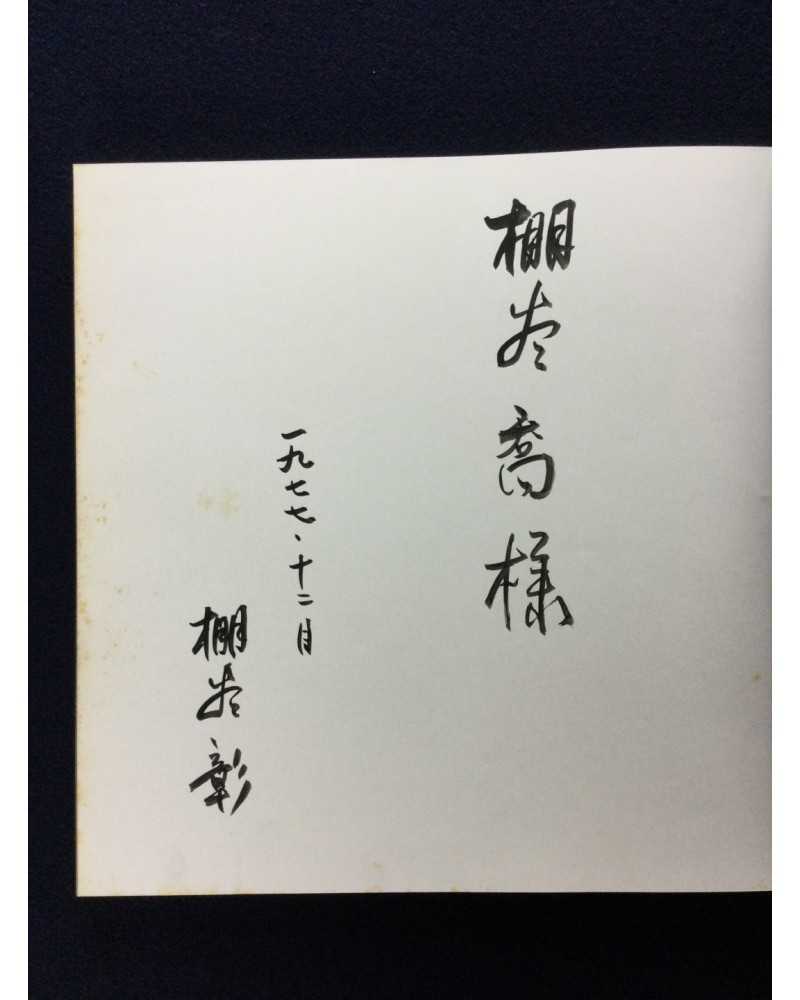 棚谷喬様
一九七七、十二月
棚谷彰